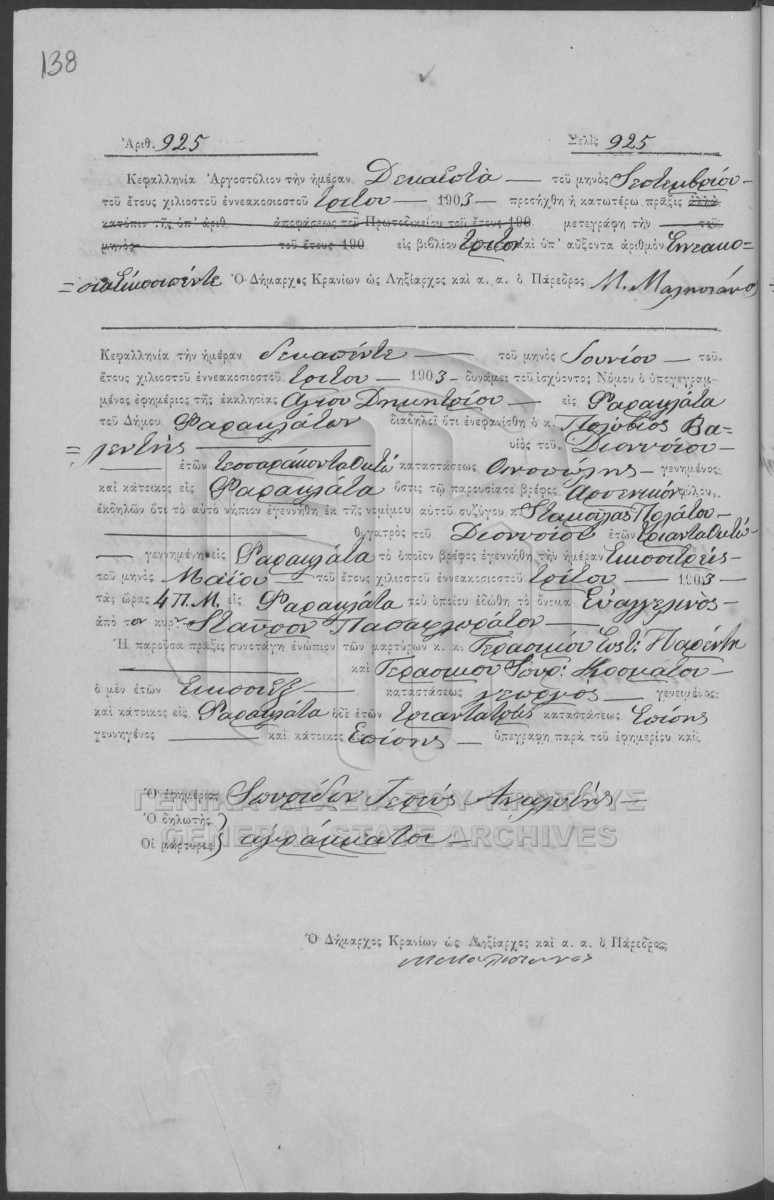 138
Ἀριθ. 925 Σελὶς 925
Κεφαλληνία Ἀργοστόλιον τὴν ἡμέραν Δεκαεπτὰ — τοῦ μηνὸς Σεπτεμβρίου —
τοῦ ἔτους χιλιοστοῦ ἐννεακοσιοστοῦ τρίτου — 1903 — προσήχθη ἡ κατωτέρω πρᾶξις ἀλλὰ
κατόπιν τῆς ὑπ' ἀριθ. ἀποφάσεως τοῦ Πρωτοδικείου τοῦ ἔτους 190 μετεγράφη τὴν — τοῦ
μηνὸς τοῦ ἔτους 190 εἰς βιβλίον τρίτον καὶ ὑπ' αὔξοντα ἀριθμὸν Ἐννεακο=
=σιαείκοσιπέντε Ὁ Δήμαρχος Κρανίων ὡς Ληξίαρχος καὶ α. α. ὁ Πάρεδρος
Κεφαλληνία τὴν ἡμέραν Δεκαπέντε — τοῦ μηνὸς Ἰουνίου — τοῦ
ἔτους χιλιοστοῦ ἐννεακοσιοστοῦ τρίτου — 1903 — δυνάμει τοῦ ἰσχύοντος Νόμου ὁ ὑπογεγραμ-
μένος ἐφημέριος τῆς ἐκκλησίας Ἁγίου Δημητρίου — εἰς Φαρακλάτα
τοῦ Δήμου Φαρακλάτων διαδηλοῖ ὅτι ἐνεφανίσθη ὁ κ. Πολύβιος Βα=
=λεντής — υἱὸς τοῦ Διονυσίου —
— ἐτῶν τεσσαράκοντα ὀκτώ καταστάσεως Οἰνοπώλης — γενημένος
καὶ κάτοικος εἰς Φαρακλάτα ὅστις τῷ παρουσίασε βρέφος Ἀρσενικοῦ φύλου,
ἐκδηλῶν ὅτι τὸ αὐτὸ νήπιον ἐγεννήθη ἐκ τῆς νομίμου αὐτοῦ συζύγου κ.
— θυγατρὸς τοῦ Διονυσίου ἐτῶν τριάντα ὀκτώ
— γεννημένη εἰς Φαρακλάτα τὸ ὁποῖον βρέφος ἐγεννήθη τὴν ἡμέραν Εἰκοσιτρεῖς —
τοῦ μηνὸς Μαΐου — τοῦ ἔτους χιλιοστοῦ ἐννεακοσιοστοῦ τρίτου — 1903 —
τὰς ὥρας 4 Π.Μ. εἰς Φαρακλάτα τοῦ ὁποίου ἐδώθη τὸ ὄνομα Εὐαγγελινὸς —
ἀπὸ τον κύρ. Σταῦρον —
Ἡ παροῦσα πρᾶξις συνετάγη ἐνώπιον τῶν μαρτύρων κ. κ. Γερασίμου
— καὶ Γερασίμου Σπυρ: —
ὁ μὲν ἐτῶν Εἰκοσιέξ — καταστάσεως γεωργος — γενειμένος
καὶ κάτοικος εἰς Φαρακλάτα ὁδὲ ἐτῶν τριαντατρεῖς καταστάσεως Ἐπίσης
γεννηγένος — καὶ κάτοικος Ἐπίσης — ὑπεγράφη παρὰ τοῦ ἐφημερίου καὶ
Ὁ ἐφημέριος Σπυρίδων Ἱερεύς —
Ὁ δηλωτής
Οἱ μάρτυρες } ἀγράμματοι —
ΓΕΝΙΚΑ ΑΡΧΕΙΑ ΤΟΥ ΚΡΑΤΟΥΣ
GENERAL STATE ARCHIVES
Ὁ Δήμαρχος Κρανίων ὡς Ληξίαρχος καὶ α. α. ὁ Πάρεδρος